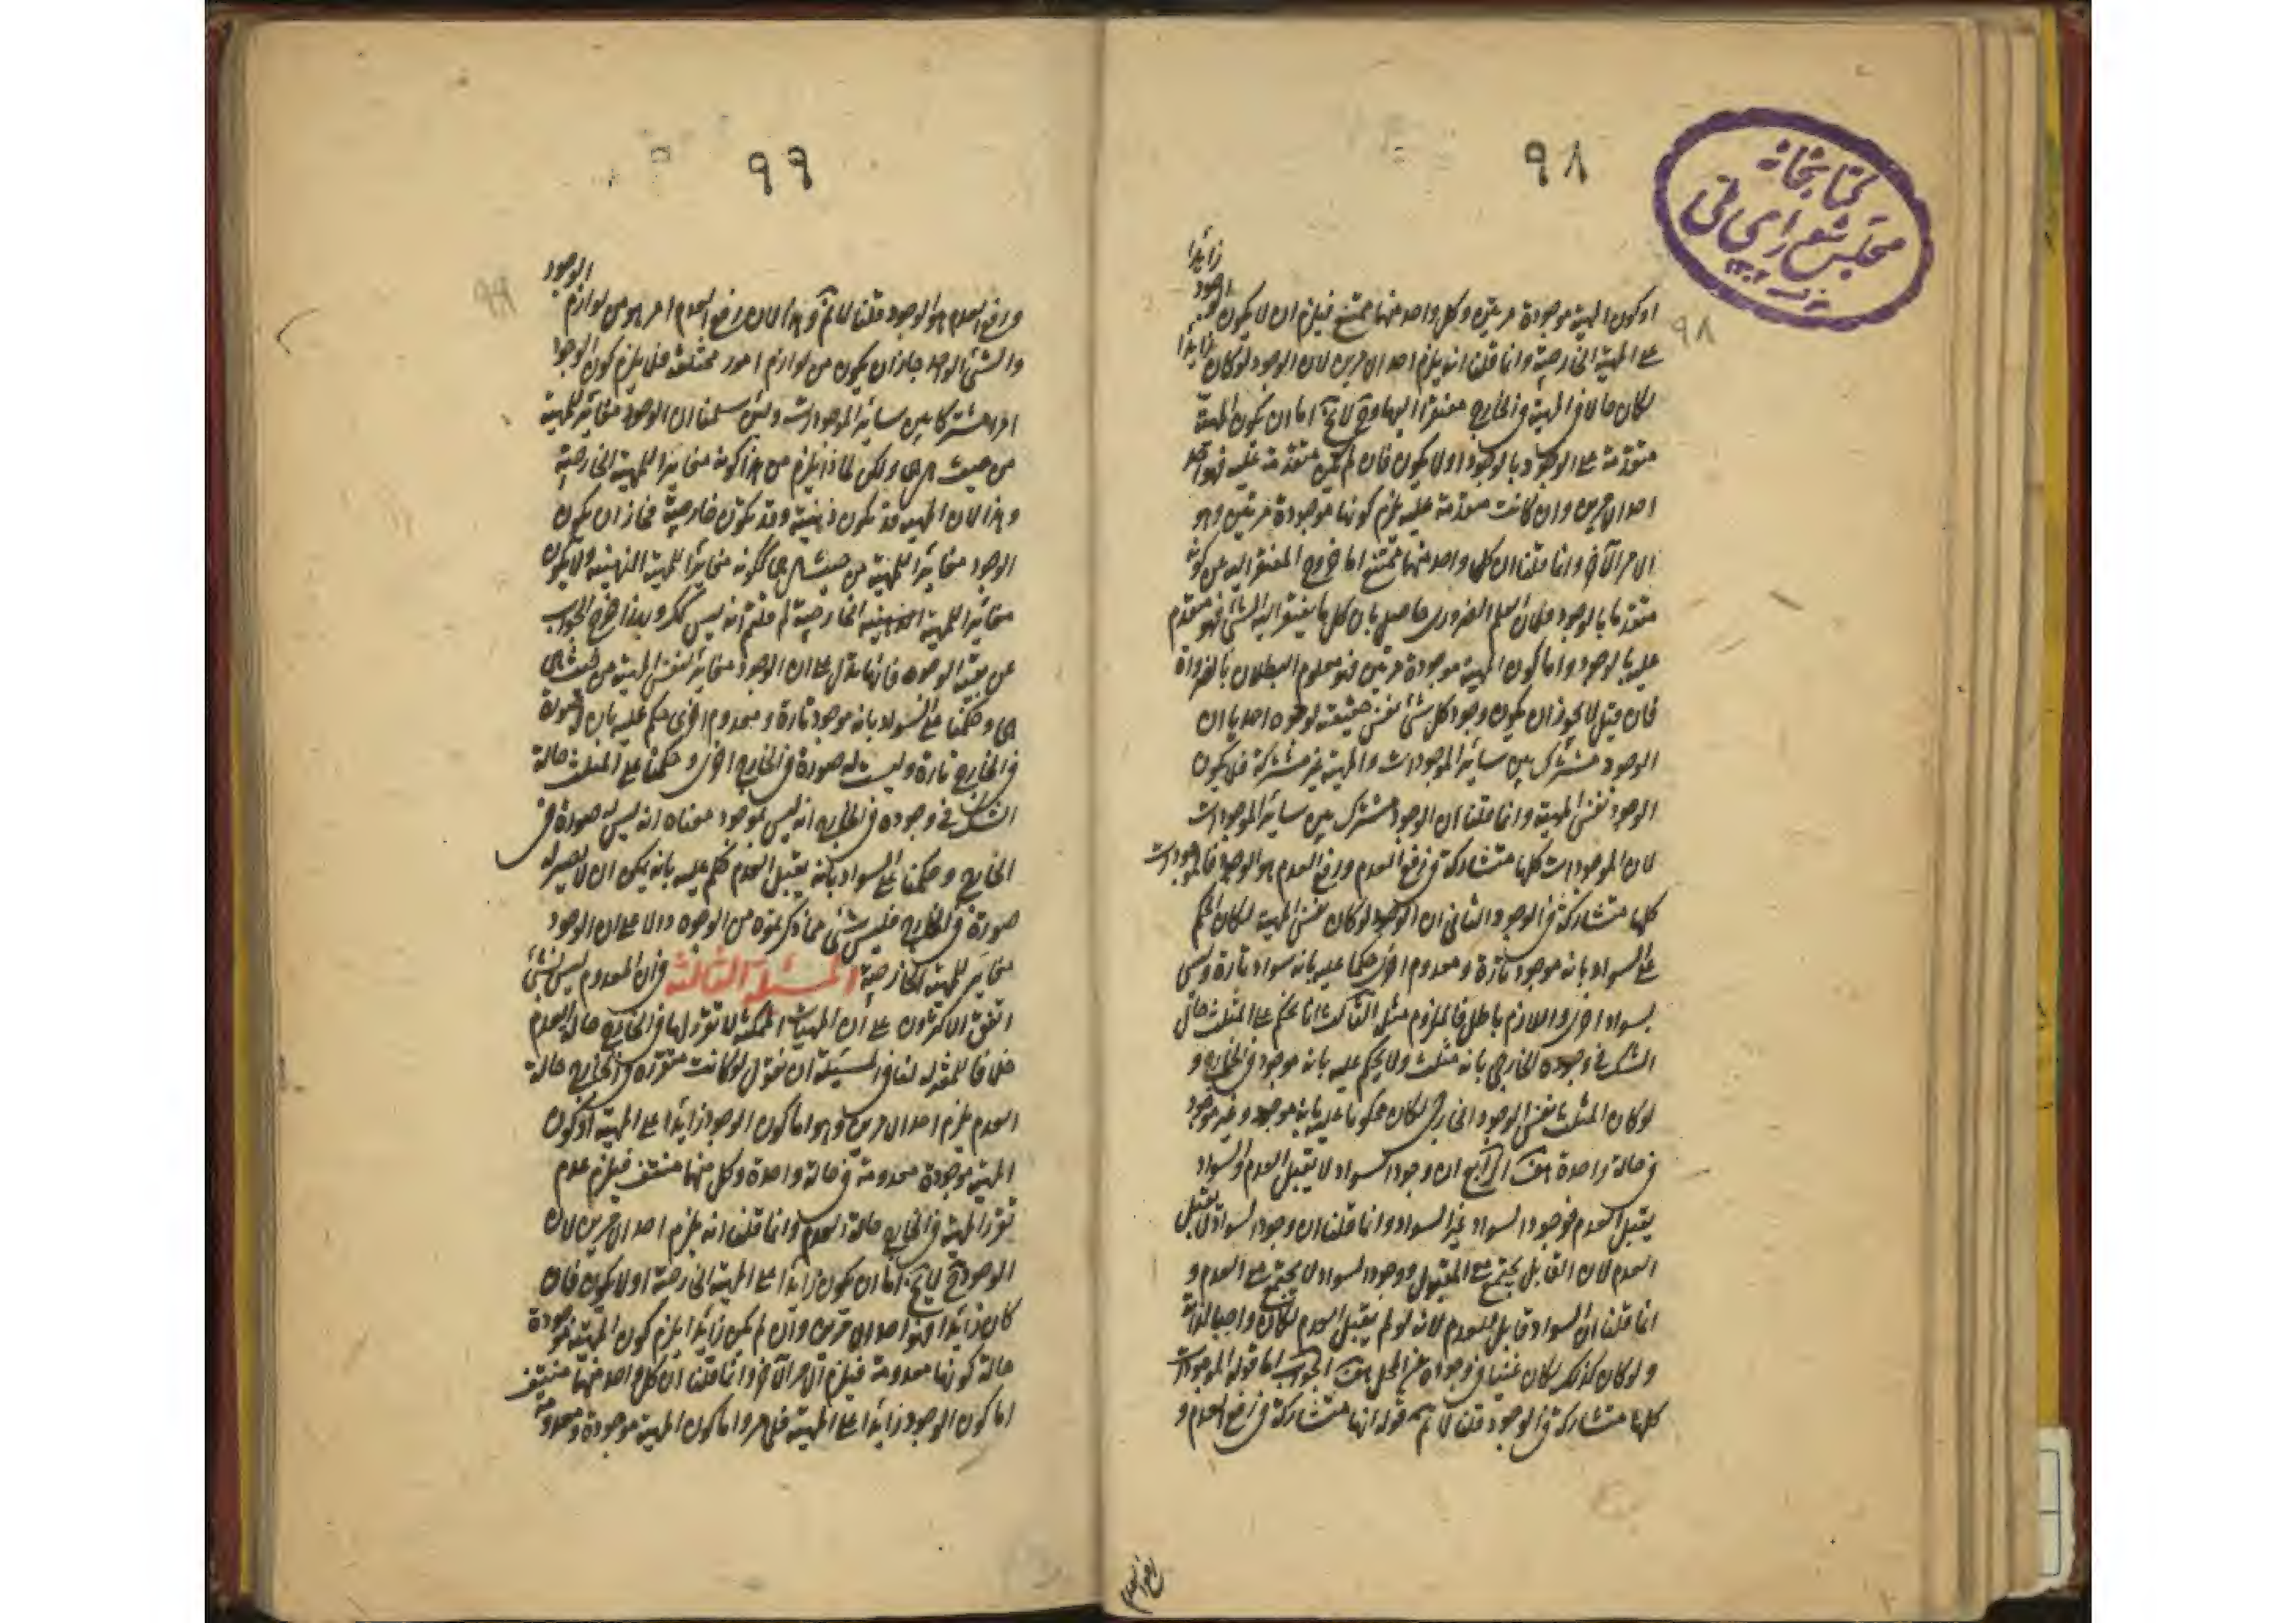 ٩٨
كتابخانه
مجلس شورای ملی
زايدا
او كون المهية موجودة مرتين وكل واحد منهما ممتنع فيلزم ان لا يكون الوجود
على المهية الخارجية وانما قلنا انه يلزم احد الامرين لان الوجود لو كان زايدا
لكان حالا فى المهية فى الخارج مفتقرا اليها وح لا يخ اما ان يكون المهية
متقدمة على الوجود بالوجود او لا يكون فان لم يكن متقدمة عليه فهو احد
احد الامرين وان كانت متقدمة عليه يلزم كونها موجودة مرتين وهو
الامر الآخر وانما قلنا ان كل واحد منهما ممتنع اما خروج المفتقر اليه من كونه
متقدما بالوجود فلان العلم الضرورى حاصل بان كل ما يفتقر اليه الشئ فهو متقدم
عليه بالوجود واما كون المهية موجودة مرتين فهو معلوم البطلان بالضرورة
فان قيل لا يجوز ان يكون وجود كل شئ نفس حقيقته لوجوه احدها ان
الوجود مشترك بين سائر الموجودات والمهية غير مشتركة فلا يكون
الوجود نفس المهية وانما قلنا ان الوجود مشترك بين سائر الموجودات
لان الموجودات كلها متشاركة فى رفع العدم ورفع العدم هو الوجود فالموجودات
كلها متشاركة فى الوجود الثانى ان الوجود لو كان نفس المهية لكان الحكم
على السواد بانه موجود تارة ومعدوم اخرى حكما عليه بانه سواد تارة وليس
بسواد اخرى واللازم باطل فالملزوم مثله الثالث انا نحكم على المثلث حال
الشك فى وجوده الخارجى بانه مثلث ولا يحكم عليه بانه موجود فى الخارج و
لو كان المثلث نفس الوجود الخارجى لكان محكوما عليه بانه موجود وغير موجود
فى حالة واحدة هف الرابع ان وجود السواد لا يقبل العدم والسواد
يقبل العدم فوجود السواد غير السواد وانما قلنا ان وجود السواد لا يقبل
العدم لان القابل يجتمع مع المقبول ووجود السواد لا يجتمع مع العدم و
انما قلنا ان السواد قابل للعدم لانه لو لم يقبل العدم لكان واجبا لذاته
ولو كان كذلك لكان غنيا فى وجوده عن المحل هف الجواب اما قوله الموجودات
كلها متشاركة فى الوجود قلنا لا نم قوله انها متشاركة فى رفع العدم و
٩٩
الوجود
ورفع العدم هو الوجود قلنا لا نم وهذا لان رفع العدم امر هو من لوازم
والشئ الواحد جاز ان يكون من لوازم امور مختلفة فلا يلزم كون الوجود
امرا مشتركا بين سائر الموجودات ولئن سلمنا ان الوجود مغاير للمهية
من حيث هى هى ولكن لماذا يلزم من هذا كونه مغايرا للمهية الخارجية
وهذا لان المهية قد تكون ذهنية وقد تكون خارجية فجاز ان يكون
الوجود مغايرا للمهية من حيث هى هى لكونه مغايرا للمهية الذهنية ولا يكون
مغايرا للمهية الخارجية لم قلتم انه ليس كذلك وبهذا خرج الجواب
عن بقية الوجوه فانها تدل على ان الوجود مغاير لنفس المهية من حيث هى
هى وحكمنا على السواد بانه موجود تارة ومعدوم اخرى حكم عليه بان له صورة
فى الخارج تارة وليست له صورة فى الخارج اخرى وحكمنا على المثلث حالة
الشك فى وجوده فى الخارج انه ليس بموجود معناه انه ليس له صورة فى
الخارج وحكمنا على السواد بانه يقبل العدم حكم عليه بانه يمكن ان لا يصير له
صورة فى الخارج فليس شئ مما ذكرتموه من الوجوه دالا على ان الوجود
مغاير للمهية الخارجية المسئلة الثالثة فى ان المعدوم ليس بشئ
اتفق الاكثرون على ان المهيات الممكنة لا تقرر لها فى الخارج حالة العدم
خلافا للمعتزلة لنا فى المسئلة ان نقول لو كانت متقررة فى الخارج حالة
العدم يلزم احد الامرين وهو اما كون الوجود زايدا على المهية او كون
المهية موجودة معدومة فى حالة واحدة وكل منهما منتف فيلزم عدم
تقرر المهية فى الخارج حالة العدم وانما قلنا انه يلزم احد الامرين لان
الوجود ح لا يخ اما ان يكون زايدا على المهية الخارجية او لا يكون فان
كان زايدا فهو احد الامرين وان لم يكن زايدا يلزم كون المهية موجودة
حالة كونها معدومة فيلزم الامر الآخر وانما قلنا ان كل واحد منهما منتف
اما كون الوجود زايدا على المهية فلما مر واما كون المهية موجودة ومعدومة